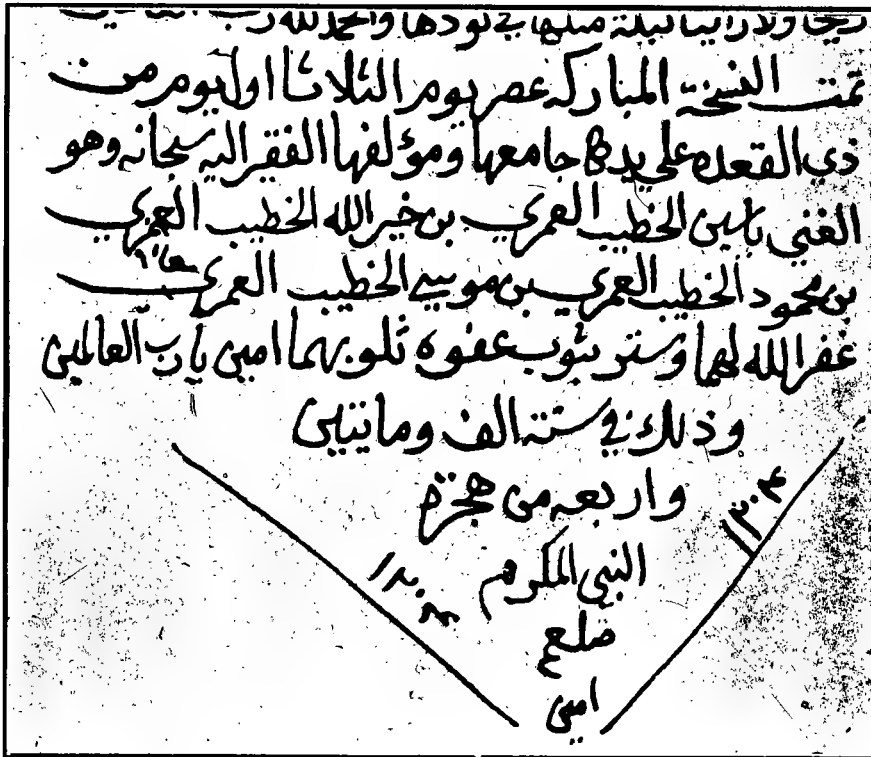 ريحا ولا راينا ليلة مثلها في نودها والحمد لله رب
تمت النسخة المباركه عصر يوم الثلاثا اول يوم من
ذي القعده على يد جامعها ومؤلفها الفقر اليه سبحانه وهو
الغني ياسين الخطيب العمري بن خير الله الخطيب العمري
بن محمود الخطيب العمري بن موسى الخطيب العمري
غفر الله لهما وستر بثوب عفوه ذلوبهما امين يا رب العالمين
وذلك في سنة الف وماتيين
واربعه من هجرة
١٢٠٤
النبي المكرم
١٢٠٤
صلعم
امين